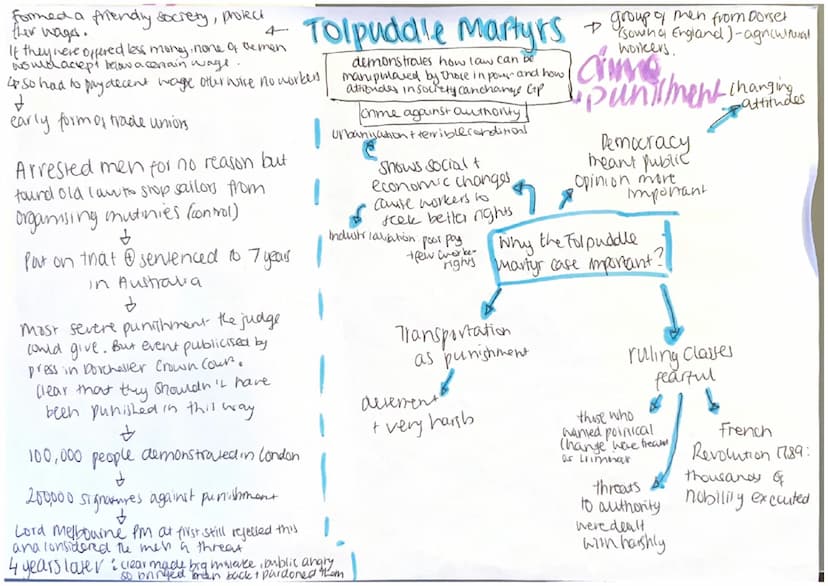 Tolpuddle Martyrs
→ group of men from Dorset
(south of England) - agricultural
workers.
←
formed a friendly society, protect
their wages.
If they were offered less money, none of the men
would accept below a certain wage.
↳ so had to pay decent wage otherwise no workers
↓
early form of trade unions
Arrested men for no reason but
found old law to stop sailors from
organising mutinies (control)
↓
Put on trial + sentenced to 7 years
in Australia
↓
Most severe punishment the judge
could give. But event publicised by
press in Dorchester Crown Court.
Clear that they shouldn't have
been punished in this way
↓
100,000 people demonstrated in London
↓
250,000 signatures against punishment
↓
Lord Melbourne PM at first still rejected this
and considered the men a threat
4 years later: clear made big mistake, public angry
so bringed men back + pardoned them
demonstrates how law can be
manipulated by those in power and how
attitudes in society can change C+P
crime against authority
crime
+ punishment
urbanisation + terrible conditions
shows social +
economic changes
cause workers to
seek better rights
Industrialisation: poor pay
+ few worker
rights
Democracy
meant public
opinion more
important
changing
attitudes
Why the Tolpuddle
martyr case important?
Transportation
as punishment
deterrent
+ very harsh
ruling classes
fearful
those who
wanted political
change were treated
as criminals
threats
to authority
were dealt
with harshly
French
Revolution 1789:
thousands of
nobility executed